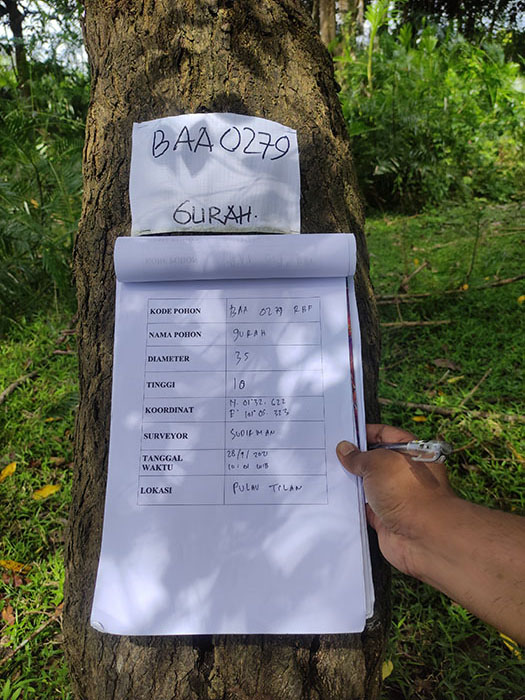 BAA 0279
GURAH.
KODE POHON BAA 0279 RHF
NAMA POHON gURAH
DIAMETER 35
TINGGI 10
KOORDINAT N. 01°32. 622
E° 101° 05. 323
SURVEYOR SUDIRMAN
TANGGAL 28/9/2021
WAKTU
LOKASI PULAU TILAN